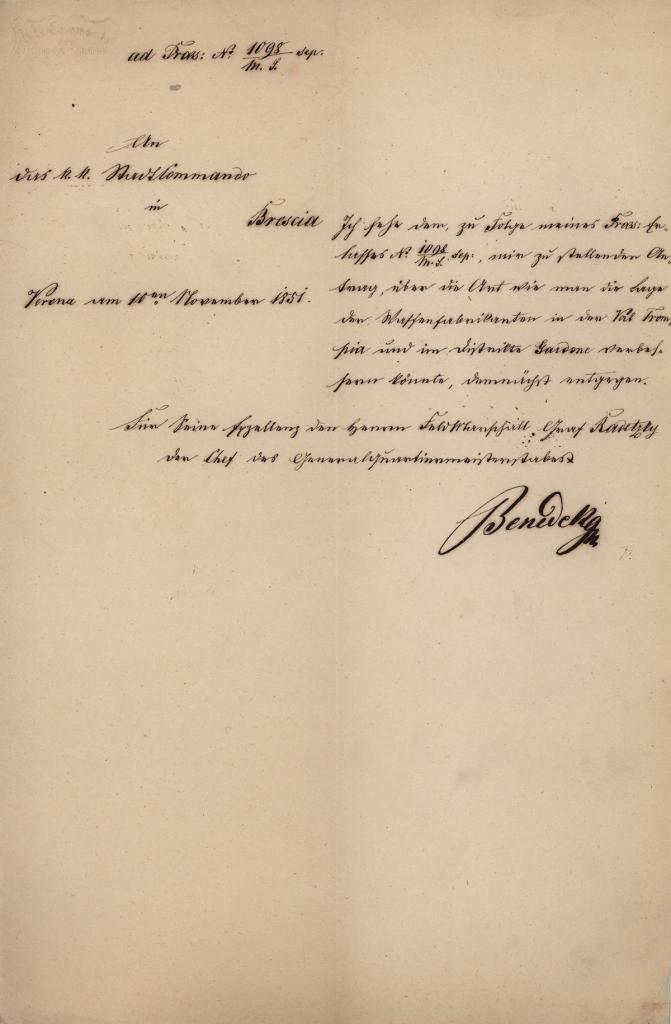 ad Präs: No 1098/M.S. sep:
An
das k. k. Stadt Commando
in
Brescia
Ich sehe dem, zu Folge meines Präs: Er-
lasses No 1098/M.S. sep:, mir zu stellenden An-
trag, über die Art wie man die Lage
der Waffenfabrikanten in der Val Trom-
pia und im Distrikte Gardone verbes-
sern könnte, demnächst entgegen.
Verona am 10ten November 1851.
Für Seine Exzellenz den Herrn Feldmarschall Graf Radetzky
der Chef des Generalquartiermeisterstabes
Benedek